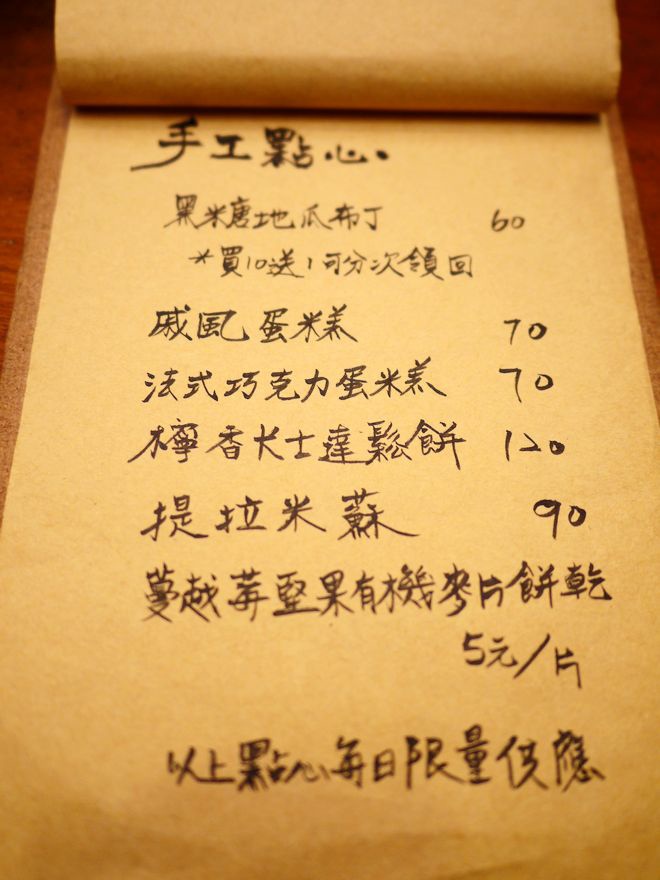 手工點心.
黑米唐地瓜布丁 60
*買10送1可分次領回
戚風蛋米羔 70
法式巧克力蛋米羔 70
檸香卡士達鬆餅 120
提拉米蘇 90
蔓越莓堅果有機麥片餅乾
5元/片
以上點心每日限量供應